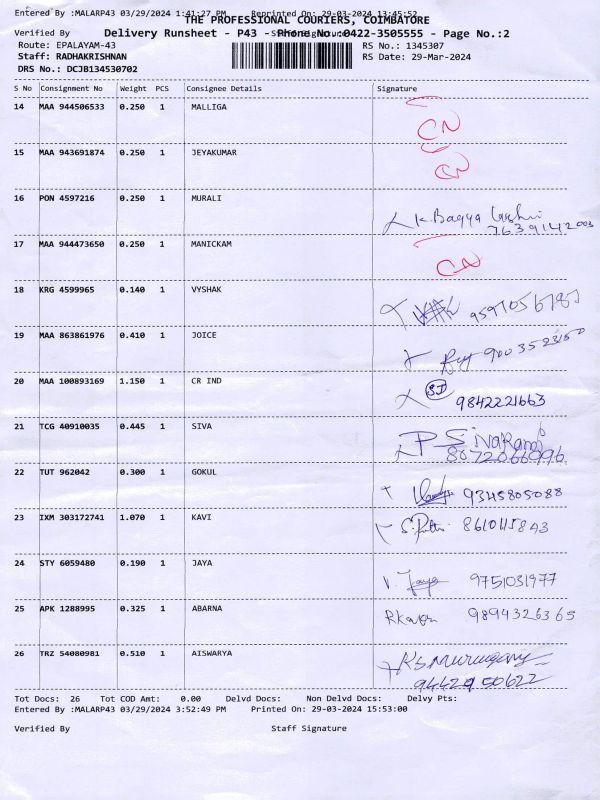 Entered By :MALARP43 03/29/2024 1:41:27 PM Reprinted On: 29-03-2024 13:45:52
THE PROFESSIONAL COURIERS, COIMBATORE
Verified By Staff Signature
Delivery Runsheet - P43 - Phone No.:0422-3505555 - Page No.:2
Route: EPALAYAM-43 RS No.: 1345307
Staff: RADHAKRISHNAN RS Date: 29-Mar-2024
DRS No.: DCJB134530702
S No Consignment No Weight PCS Consignee Details Signature
14 MAA 944506533 0.250 1 MALLIGA CN
15 MAA 943691874 0.250 1 JEYAKUMAR CN
16 PON 4597216 0.250 1 MURALI K.Bagya
7639142003
17 MAA 944473650 0.250 1 MANICKAM CN
18 KRG 4599965 0.140 1 VYSHAK
19 MAA 863861976 0.410 1 JOICE
20 MAA 100893169 1.150 1 CR IND SJ 9842221663
21 TCG 40910035 0.445 1 SIVA P SivaRamj
8072066996
22 TUT 962042 0.300 1 GOKUL 9345805088
23 IXM 303172741 1.070 1 KAVI
24 STY 6059480 0.190 1 JAYA V. Jaya 9751031977
25 APK 1288995 0.325 1 ABARNA 9894326365
26 TRZ 54080981 0.510 1 AISWARYA K.S.Murugany
9442950622
Tot Docs: 26 Tot COD Amt: 0.00 Delvd Docs: Non Delvd Docs: Delvy Pts:
Entered By :MALARP43 03/29/2024 3:52:49 PM Printed On: 29-03-2024 15:53:00
Verified By Staff Signature